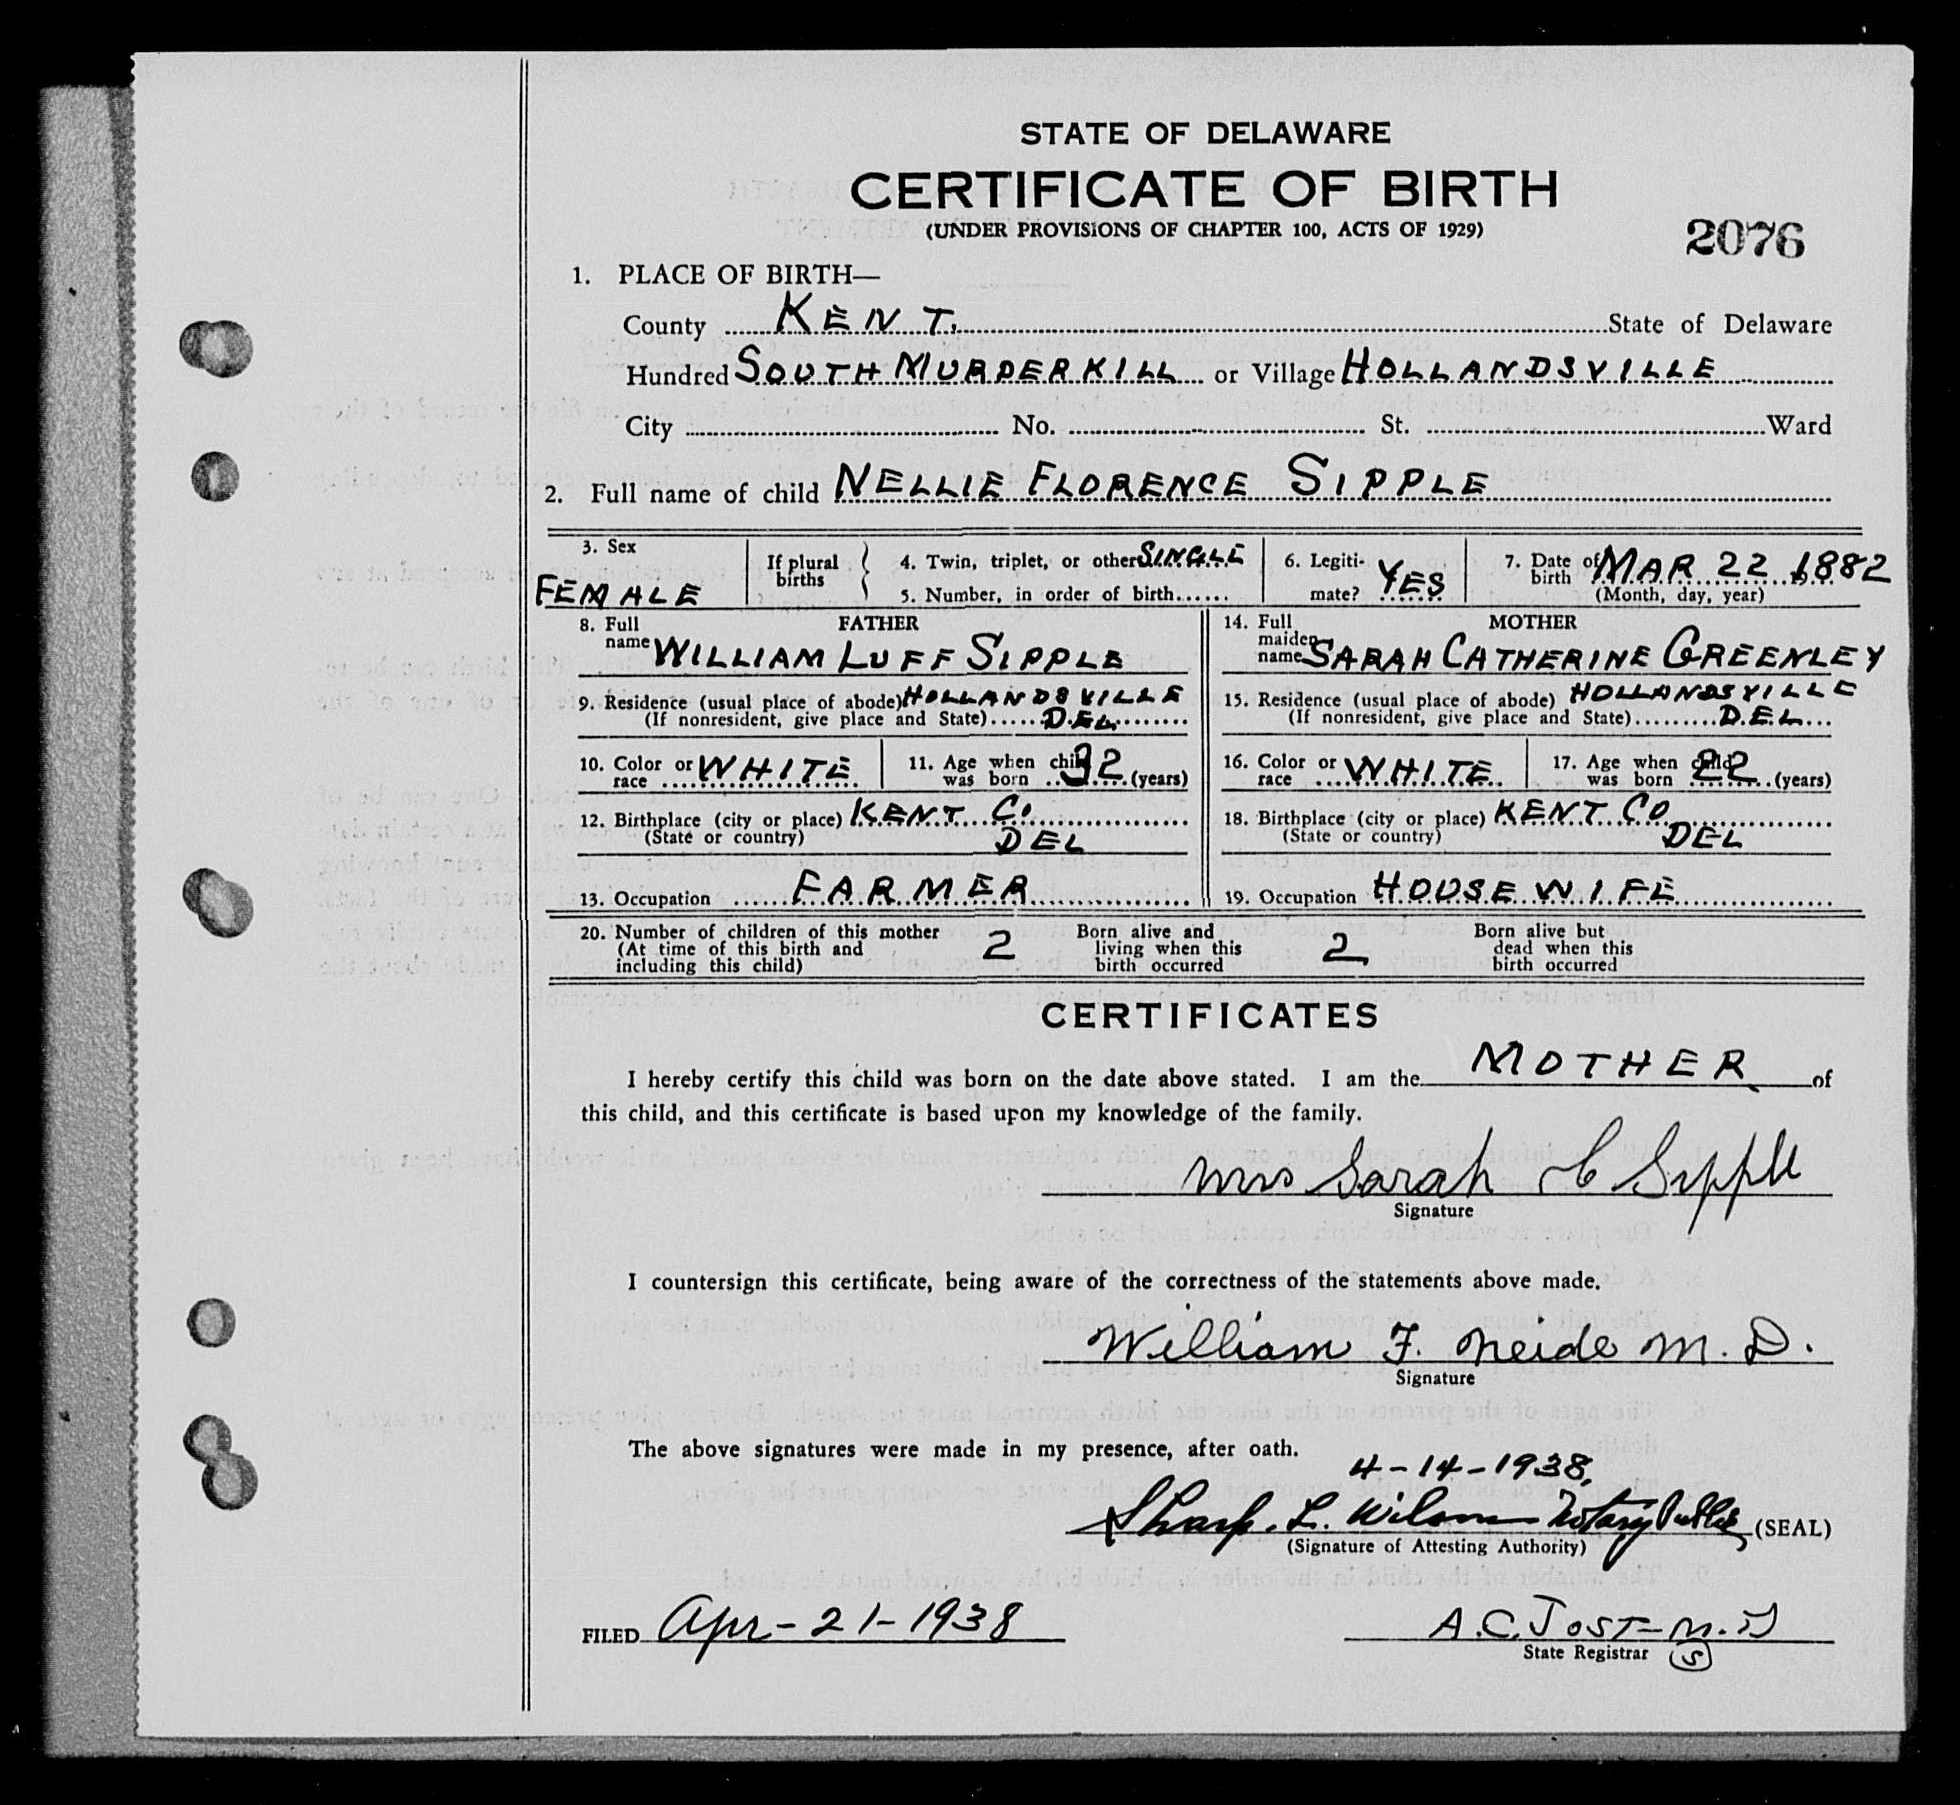 STATE OF DELAWARE
CERTIFICATE OF BIRTH
(UNDER PROVISIONS OF CHAPTER 100, ACTS OF 1929)
2076
1. PLACE OF BIRTH—
County KENT. State of Delaware
Hundred SOUTH MURDERKILL or Village HOLLANDSVILLE
City No. St. Ward
2. Full name of child NELLIE FLORENCE SIPPLE
3. Sex FEMALE
If plural births
4. Twin, triplet, or other SINGLE
5. Number, in order of birth
6. Legitimate? YES
7. Date of birth MAR 22 1882
(Month, day, year)
FATHER
8. Full name WILLIAM LUFF SIPPLE
9. Residence (usual place of abode) HOLLANDSVILLE
(If nonresident, give place and State) DEL.
10. Color or race WHITE
11. Age when child was born 32 (years)
12. Birthplace (city or place) KENT CO.
(State or country) DEL
13. Occupation FARMER
MOTHER
14. Full maiden name SARAH CATHERINE GREENLEY
15. Residence (usual place of abode) HOLLANDSVILLE
(If nonresident, give place and State) DEL
16. Color or race WHITE
17. Age when child was born 22 (years)
18. Birthplace (city or place) KENT CO
(State or country) DEL
19. Occupation HOUSEWIFE
20. Number of children of this mother
(At time of this birth and
including this child) 2
Born alive and
living when this
birth occurred 2
Born alive but
dead when this
birth occurred
CERTIFICATES
I hereby certify this child was born on the date above stated. I am the MOTHER of
this child, and this certificate is based upon my knowledge of the family.
Mrs Sarah C Sipple
Signature
I countersign this certificate, being aware of the correctness of the statements above made.
William F. Neide M.D.
Signature
The above signatures were made in my presence, after oath.
4-14-1938
Sharp. L. Wilson Notary Public (SEAL)
(Signature of Attesting Authority)
FILED Apr-21-1938
A.C. JOST-M.D
State Registrar S